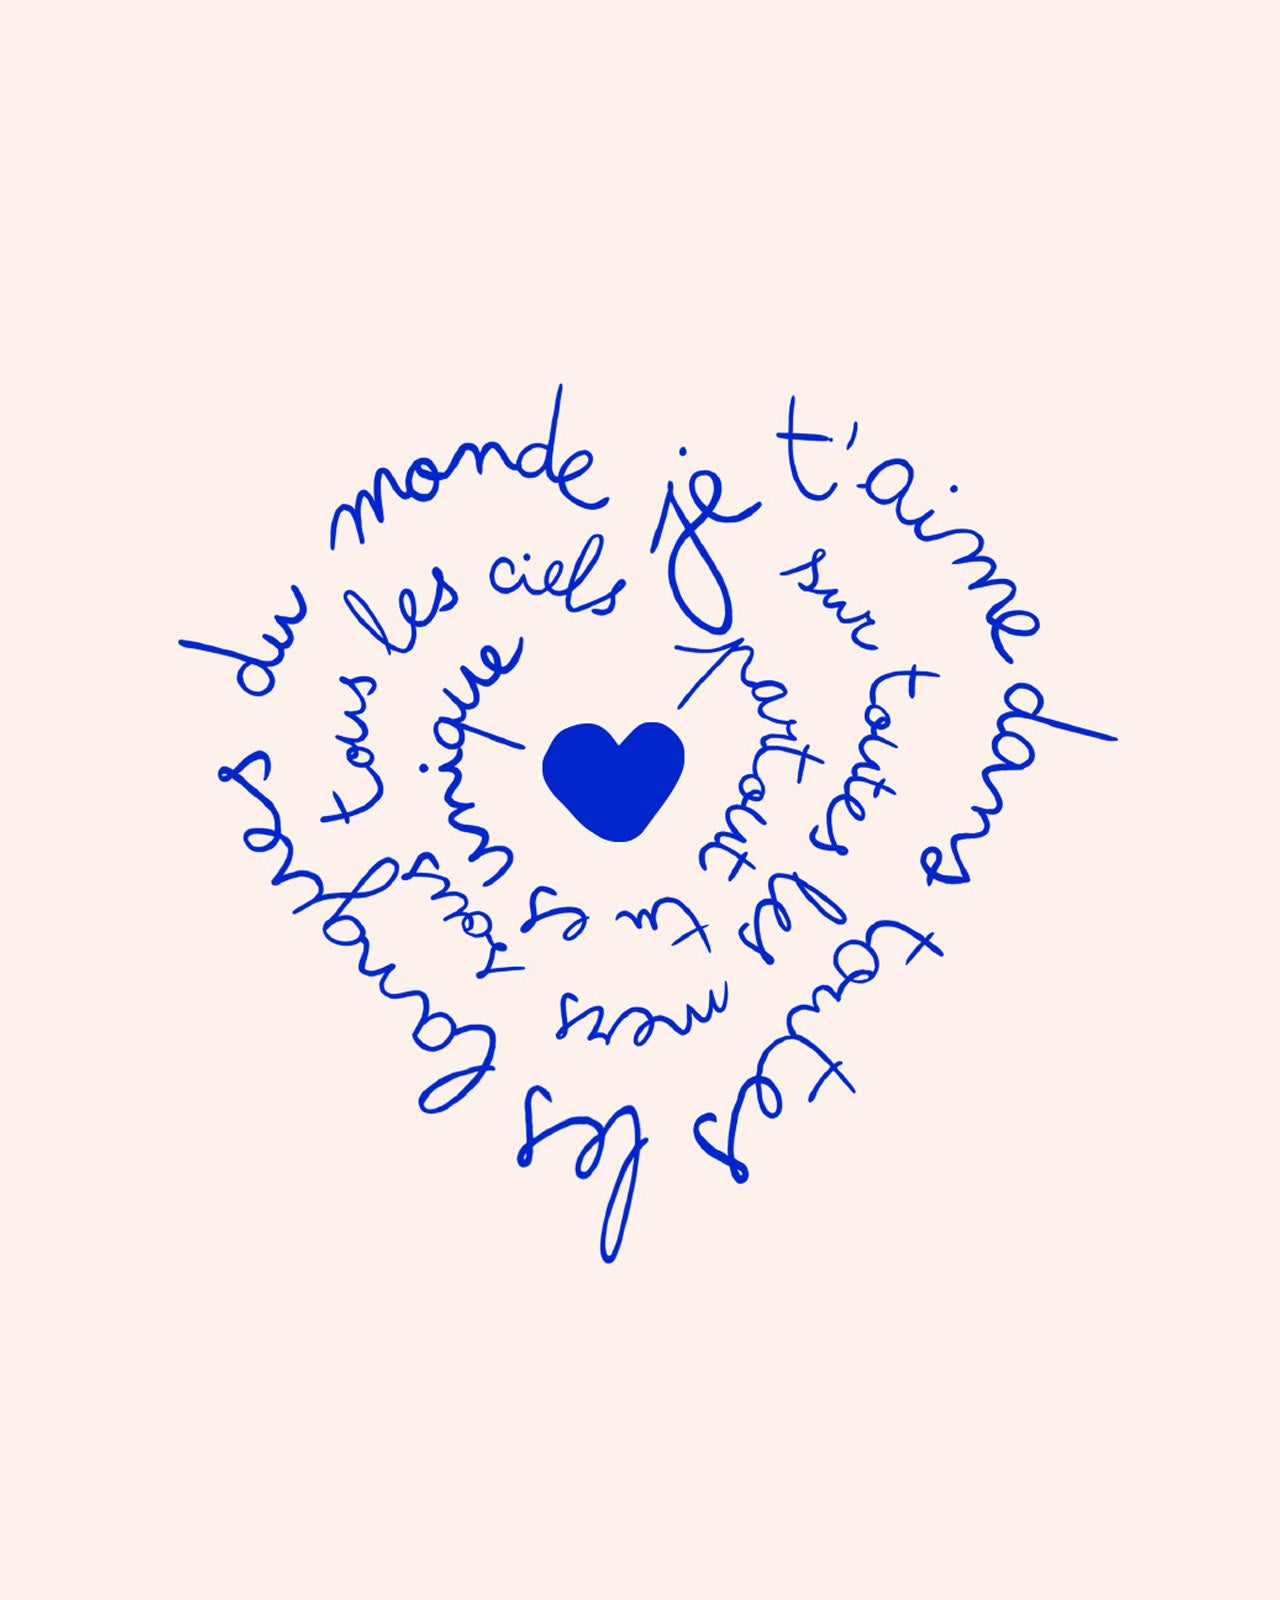 je t'aime dans toutes les langues du monde
sur toutes les mers sous tous les ciels
partout tu es unique